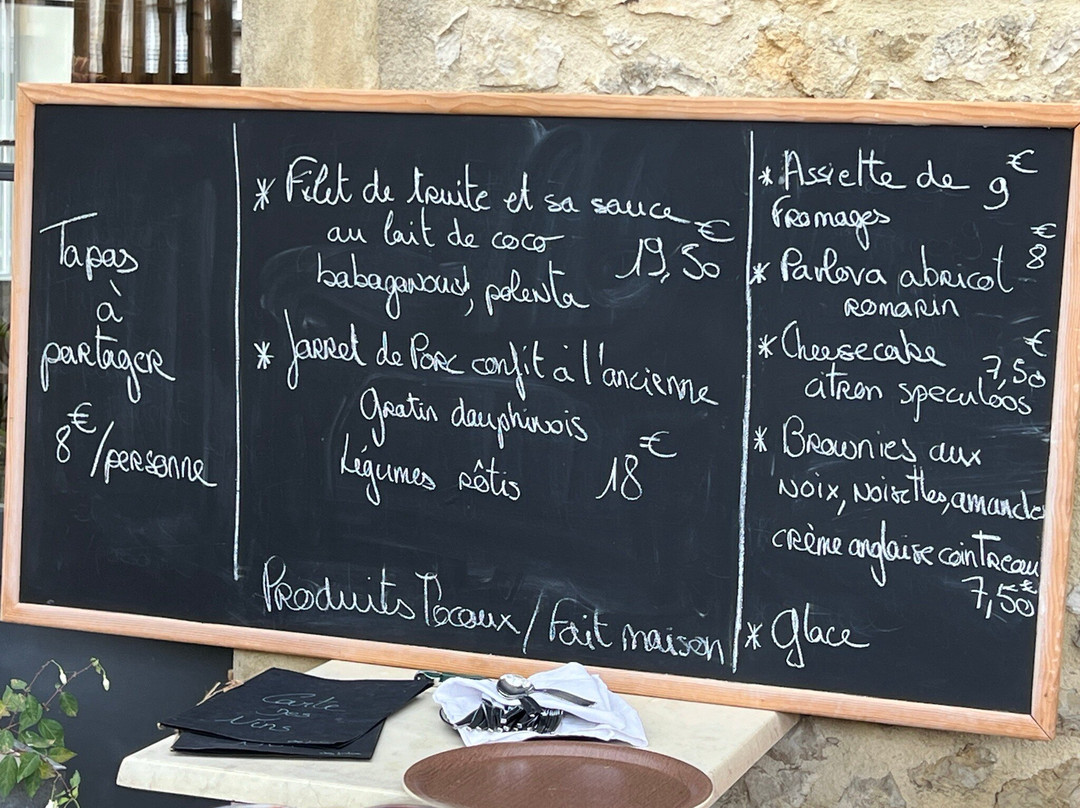 Tapas
à
partager
8€/personne
* Filet de truite et sa sauce
au lait de coco 19,50€
babaganoush, polenta
* Jarret de Porc confit à l'ancienne
gratin dauphinois
Légumes rôtis 18€
Produits Locaux / Fait maison
* Assiette de 9€
fromages
* Pavlova abricot 8€
romarin
* Cheesecake 7,50€
citron speculoos
* Brownies aux
noix, noisettes, amandes
crème anglaise cointreau
7,50€
* Glace
Carte
des
Vins